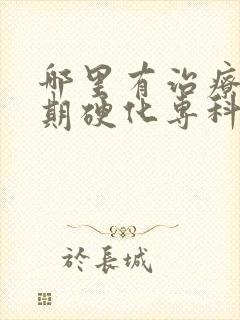 哪里有治療
期硬化专科
於長城